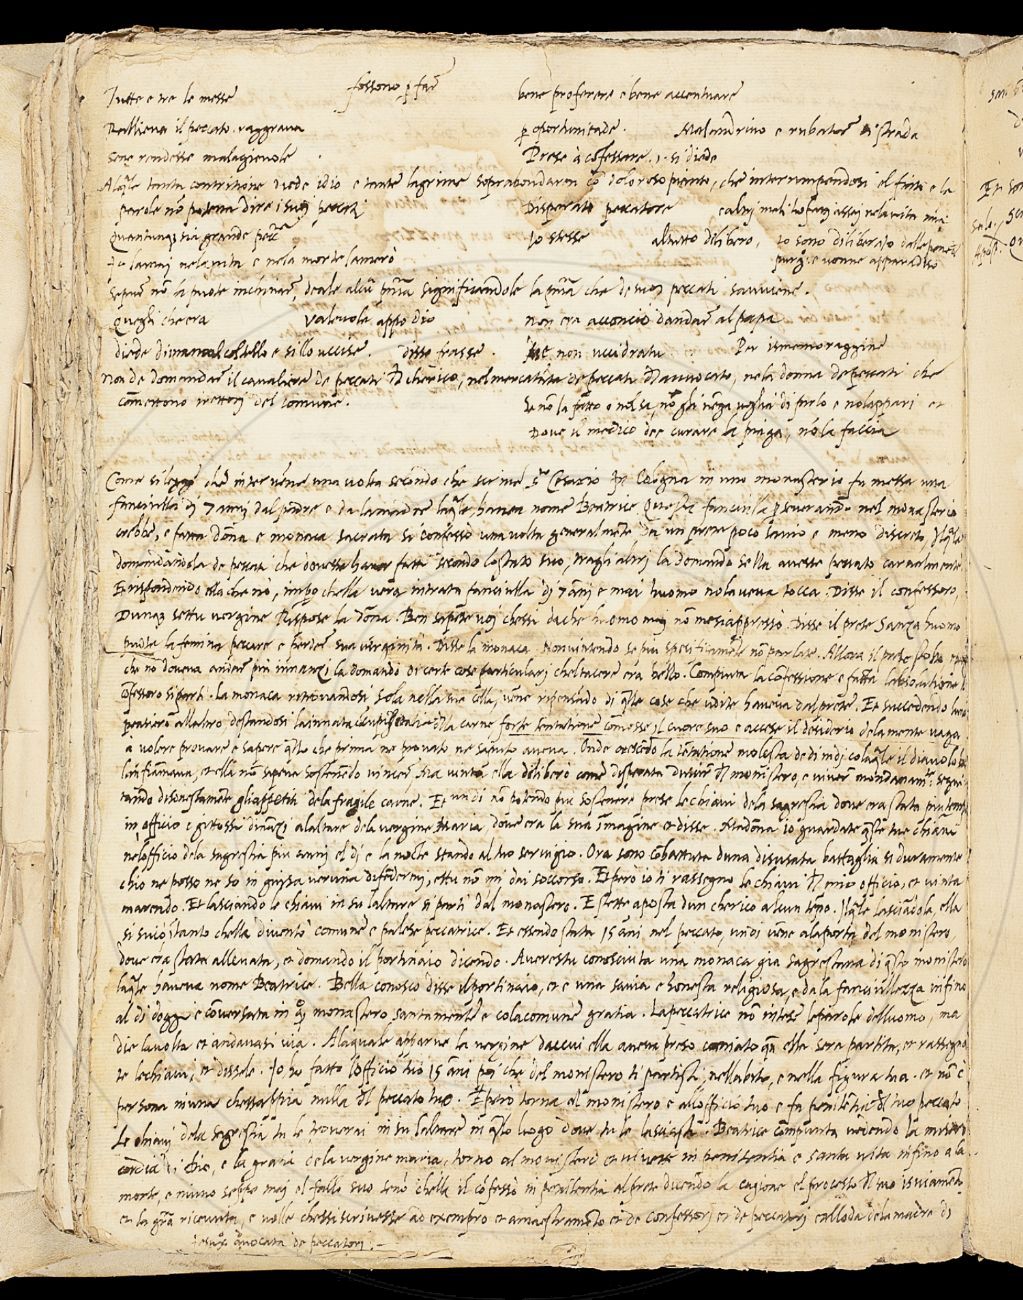 Tutte e tre le messe fossono p far bene proferere e bene accentuare
Ralliena il peccato raggrava p oportunitade. Malandrino e rubatore di strada
sene rendesse malagevole. Prese à cōfessare. si diede
Alq̄le tanta contritione diede idio e tante lagrime soprabondaron cō doloroso pianto, che interrumpendosi el fiato e la
parole nō potena dire i suoi peccati Disperato peccatore
quantunq; sia grande Io stesse al tutto dilibero, io sono diliberato dalle pene
nela vita e nela morte lamerò e venne apparadiso
significandole la che de suoi peccati
Quegli che era valevole appo dio non era acconcio dandar al papa
diede di mano al coltello e sillo uccise. disse frasse. non uccidratu Per ismemoraggine
non de domandar il cavaliere de peccati del cherico, nel mercatāta de peccati del avvocato, nela donna de peccati che
cōmettono rettori del comune. Se nō la fatto o nolsa, nō gli vēga voglia di farlo e nolappari et
Dove il medico dee curare la piaga, nō la faccia
Come si legge che intervēne una volta secondo che scrive Sº Cesario In Cologna in uno monasterio fu messa una
fanciulla di 7 anni dal padre e da la madre laq̄le haveva nome Beatrice Questa fanciulla p severando nel monasterio
crebbe, e fatta dōna e monaca sacrata si confesso una volta generalmēte da un prete poco savio e meno discreto, Ilq̄le
domandādola de peccati che dovesse haver fatti secondo lo stato suo, tragli altri la domando sella avesse peccato carnalmente
E rispondendo ella che nò, impo chella vera intrata fanciella di 7 āni e mai huomo nolaveva tocca. Disse il confessoro,
Dunq; settu vergine Rispose la dōna. Ben sapete voi chessi dache huomo mai nō mesiappressò. Disse il prete Sanza huomo
puote la femina peccare e perder sua virginita. Disse la monaca Non vintendo se più specificamēte nō parlate. Allora il prete
che nō doveva andar più innanzi la domandò di certe cose particulari cheltacere era bello. Compiuta la cōfessione e fatta lassolutione il
cōfessoro si parti. la monaca ritrovandosi sola nella sua cella, vēne ripensado di q̄lle cose che udite haveva dal prete. Et succedendo luno
pensiero allaltro destandosi la innata concupiscētia della carne, forte tentatione cōmosse il cuore suo e accese il desiderio dela mente vaga
a volere provare e sapere q̄llo che prima ne provato ne saputo aveva. Onde crescēdo la tētatione molesta de di in di colaq̄le il diavolo la
confiammava, et ella nō sapeva sostenēdo vincer Ma vinta ella diliberò come disperata duscir del monistero, e viver mondanamēte segui
tando disonestamēte gliappetiti dela fragile carne. Et un di nō potendo piu sostenere prese le chiavi dela sagrestia dove era stata piu tempo
in officio e gittossi dināzi alaltare dela vergine Maria, dove era la sua imagine e disse. Madōna io guardate q̄ste tue chiavi
nelofficio dela sagrestia piu anni el di e la nocte stando al tuo servigio. Ora sono cōbattuta duna disusata battaglia si duramente
chio ne posso ne so in guisa veruna difendermi, ettu nō mi dai soccorso. Et pero io ti rassegno le chiavi del mio officio, et vinta
marendo. Et lasciando le chiavi in su laltare si parti dal monastero. E stette aposta dun cherico alcun tēpo. Ilq̄le lasciādola, ella
si svicō tanto chella diventò comune e palese peccatrice. Et essendo stata 15 āni nel peccato, un di vēne ala porta del monistero,
dove era stata allevata, et domando il portinaio dicendo. Averestu conosciuta una monaca gia sagrestana di q̄sto monistero
laq̄le haveva nome Beatrice. Bella conosco disse il portinaio, et è una savia e honesta religiosa, e dala fanciullezza infino
al di doggi e cōversata in q̄sto monastero santamente e cola comune gratia. La peccatrice nō intese le parole delluomo, ma
die la volta et andavasi via. Alaquale apparve la vergine daccui ella aveva preso comiato qn̄ ella sera partita, et rassegnato
le le chiavi, et dissele. Io ho fatto lofficio tuo 15 āni poi che del monistero ti partisti, nellabito, e nella figura tua. et nō è
persona niuna chessappia nulla del peccato tuo. Et pero torna al monistero e allofficio tuo e fa penitētia del tuo peccato
Le chiavi dela sagrestia tu le troverai in su laltare in q̄llo luogo dove tu le lasciasti. Beatrice compunta vedendo la miseri
cordia di Dio, e la gratia dela vergine maria, torno al monistero et vivette in penitentia e santa vita infino a la
morte, e niuno seppe mai el fallo suo senō chella il cōfessò in penitentia al prete dicendo la cagione el processo del suo isviamēto
et la gr̄a ricevuta, e volle chessi scrivesse ad exempro et amaestramēto et de confessori et de peccatori e alloda dela madre di
Iesux̄ avocata de peccatori. –